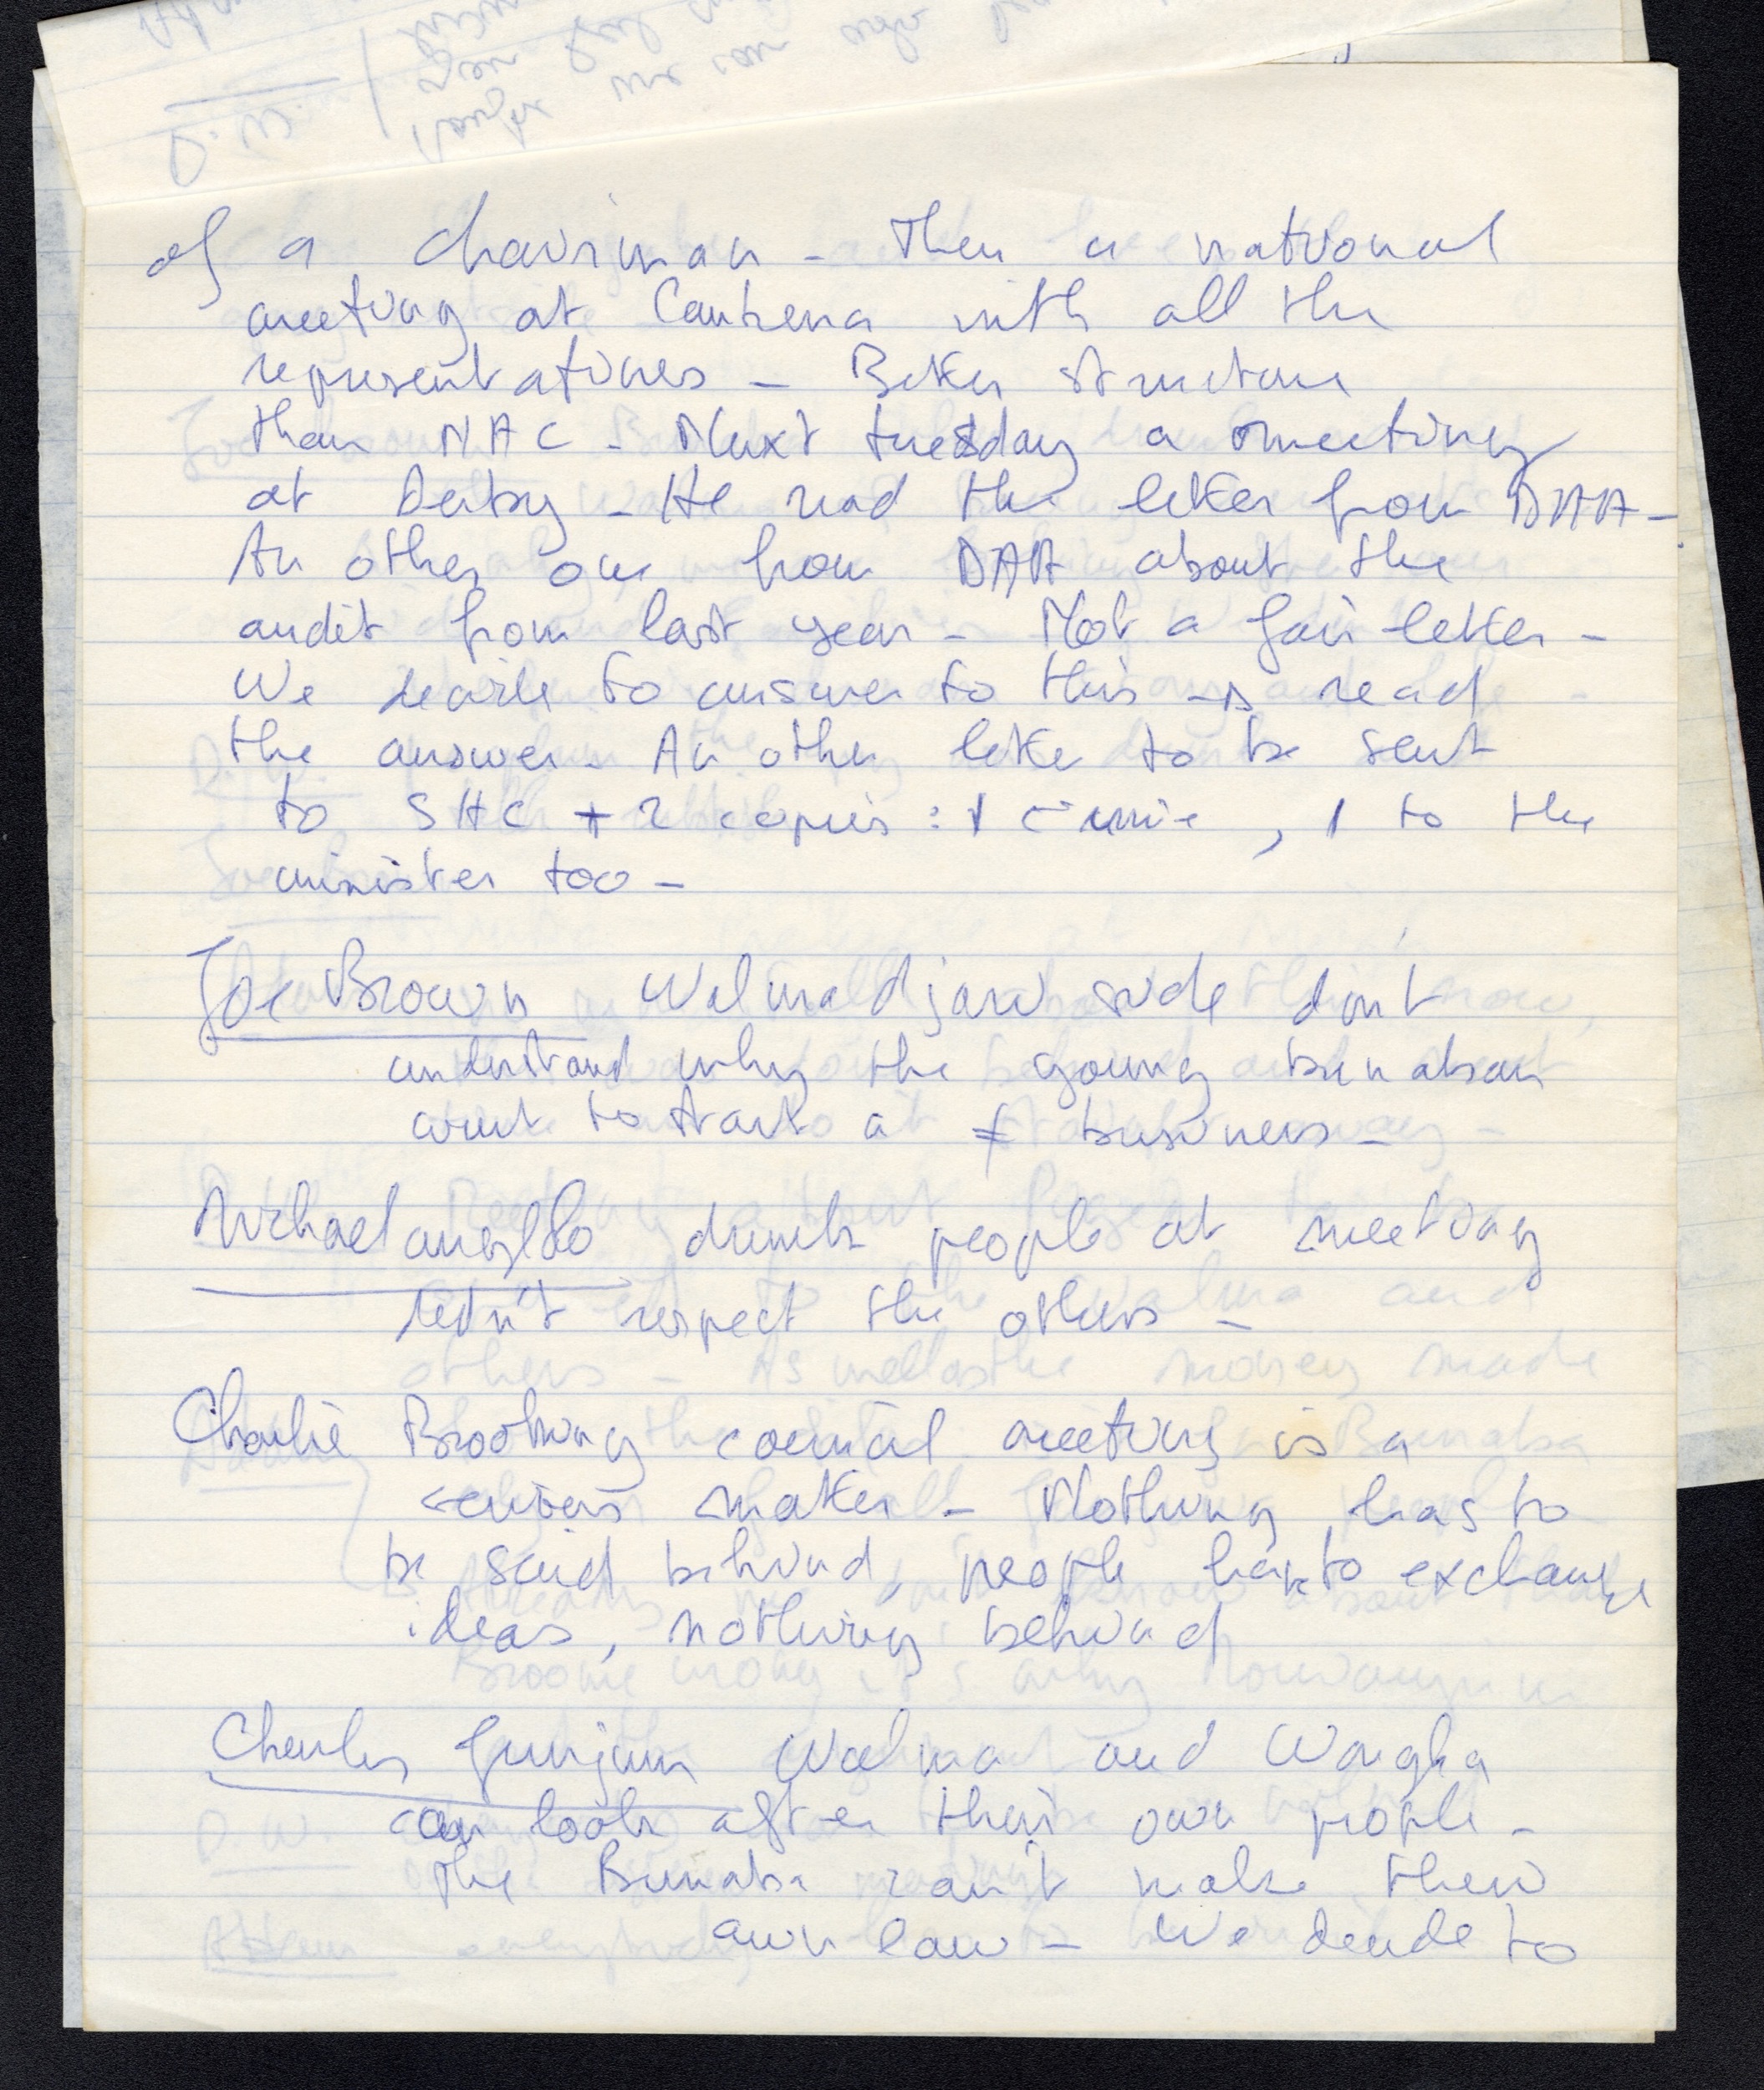 of a chairman - Then a national
meeting at Canberra with all the
representatives - Better structure
than NAC - Next tuesday a meeting
at Derby - He read the letter from DAA -
An other one from DAA about the
audit from last year - Not a fair letter -
We decide to answer to this → read
the answer - An other letter to be sent
to SHC + 2 copies : 1 , 1 to the
minister too -
Joe Brown Walmadjari side don't
understand why the young bunaban
want to start a ≠ business -
Michael angelo drunk people at meeting
didn't respect the others -
Charlie Brooking council meeting is a
serious matter - Nothing has to
be said behind, people have to exchange
ideas, nothing behind
Charley Walma and Wangka
can look after their own people -
The Bunaba can't make their
own law - We decide to